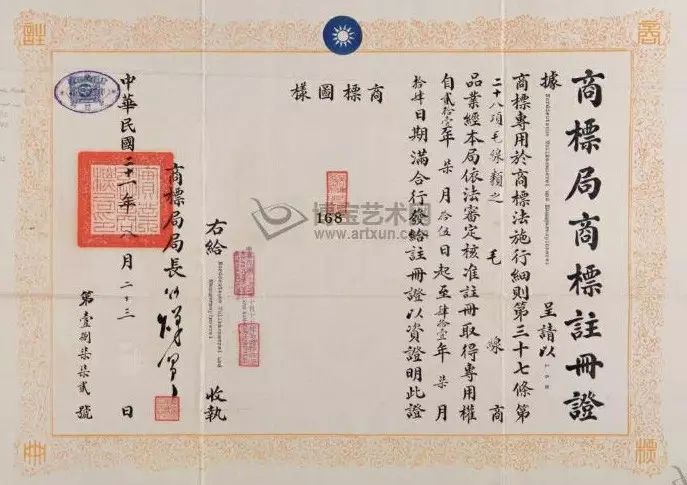 商標局商標註冊證
據 Norddeutsche Wollkämmerei und Kammgarnspinnerei 呈請以 168
商標專用於商標法施行細則第三十七條第
二十八項毛線類之 毛線 商
品業經本局依法審定核准註冊取得專用權
自貳拾壹年柒月拾伍日起至肆拾壹年柒月
拾肆日期滿合行發給註冊證以資證明此證
商標圖樣
168
右給 Norddeutsche Wollkämmerei und Kammgarnspinnerei 收執
商標局局長
中華民國二十一年八月二十三日
第壹捌柒柒貳號
博宝艺术网
www.artxun.com